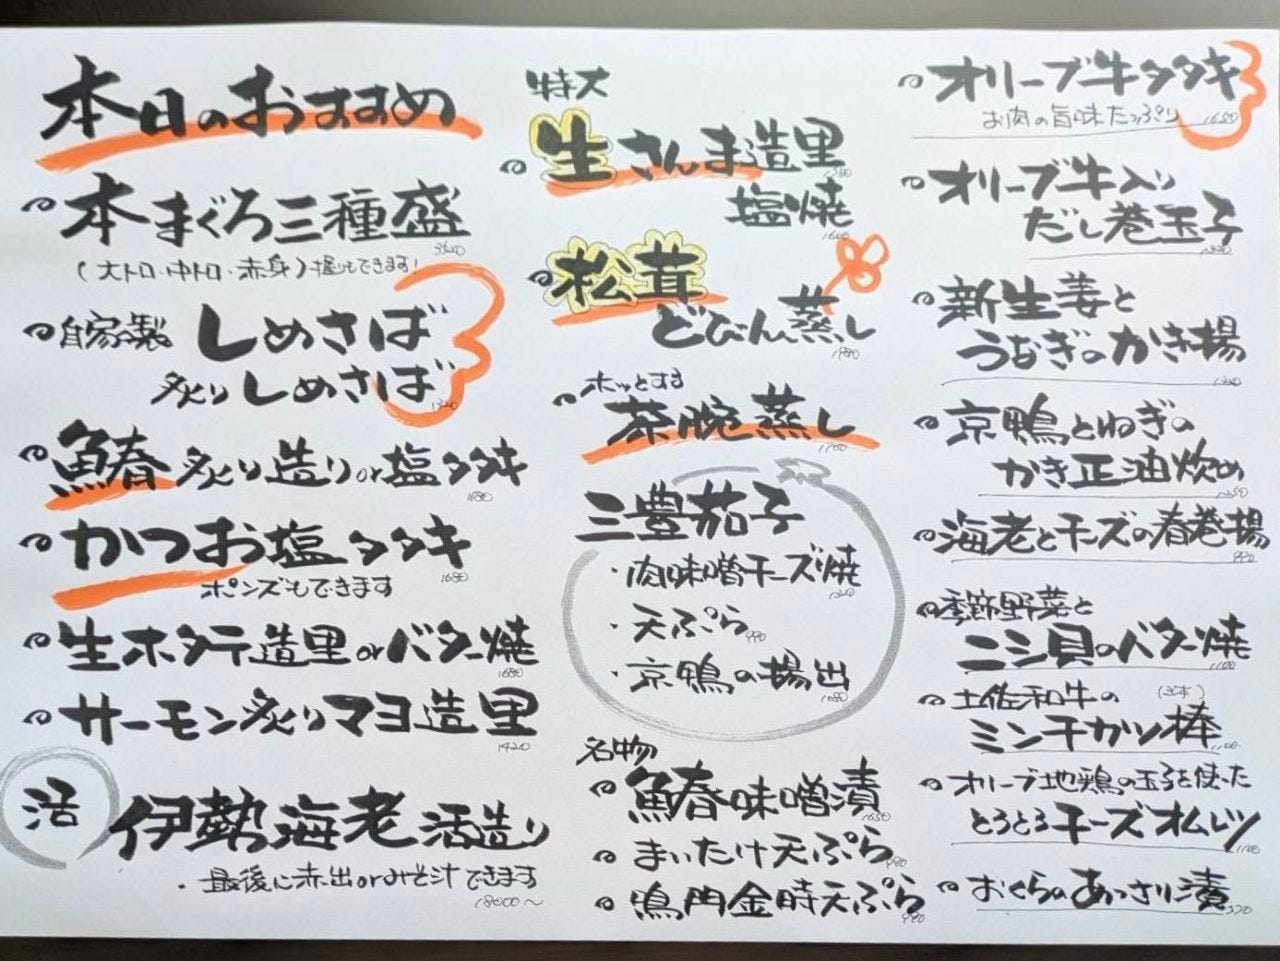 本日のおすすめ
本まぐろ三種盛
(大トロ・中トロ・赤身)握りもできます!
自家製 しめさば
炙りしめさば
1320
鰆炙り造りor塩タタキ
1680
かつお塩タタキ
1680
ポンズもできます
生ホタテ造里orバター焼
1680
サーモン炙りマヨ造里
1420
活 伊勢海老活造り
・最後に赤出orみそ汁できます
18000〜
特大
生さんま造里
塩焼
1600
松茸
どびん蒸し
ホッとする
茶腕蒸し
1100
三豊茄子
・肉味噌チーズ焼
・天ぷら
990
・京鴨の揚出
1080
名物
鰆味噌漬
1650
まいたけ天ぷら
鳴門金時天ぷら
オリーブ牛タタキ
お肉の旨味たっぷり
オリーブ牛入り
だし巻玉子
新生姜と
うなぎのかき揚
京鴨とねぎの
かき正油炊め
海老とチーズの春巻揚
990
季節野菜と
ニシ貝のバター焼
1100
土佐和牛の
ミンチカツ棒
1100
オリーブ地鶏の玉子を使った
とろとろチーズオムレツ
1100
おくらのあっさり漬